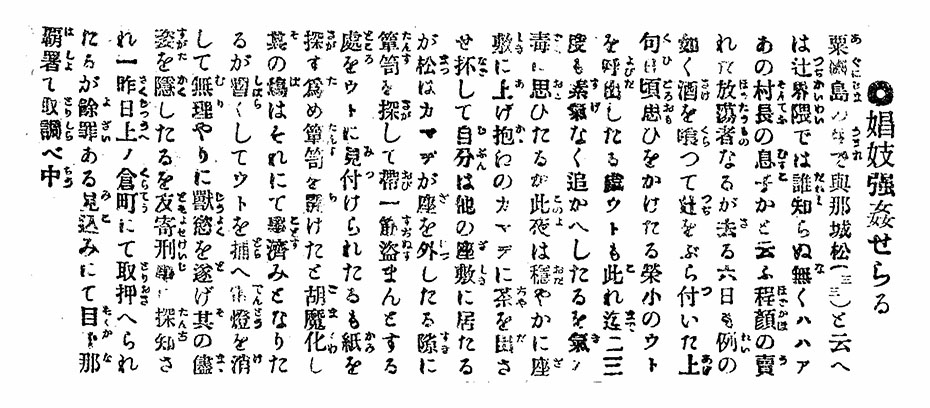 ◎娼妓强姦せらる
粟國島の者で與那城松(三三)と云へ
は辻界隈では誰知らぬ無くハハア
あの村長の息子かと云ふ程顔の賣
れた放蕩者なるが去る六日も例の
如く酒を喰つて辻をぶら付いた上
句日頃思ひをかけたる榮小のウト
を呼出したる處ウトも此れ迄二三
度も素氣なく追かへしたるを氣ノ
毒に思ひたるか此夜は穩やかに座
敷に上げ抱わのカマデに茶を出さ
せ抔して自分は他の座敷に居たる
が松はカマデが座を外したる隙に
簞笥を探して帶一筋盜まんとする
處をウトに見付けられたるも紙を
探す爲め簞笥を開けたと胡魔化し
其の塲はそれにて事濟みとなりた
るが暫くしてウトを捕へ電燈を消
して無理やりに獸慾を遂げ其の儘
姿を隱したるを友寄刑事に探知さ
れ一昨日上ノ倉町にて取押へられ
たるが餘罪ある見込みにて目下那
覇署て取調べ中